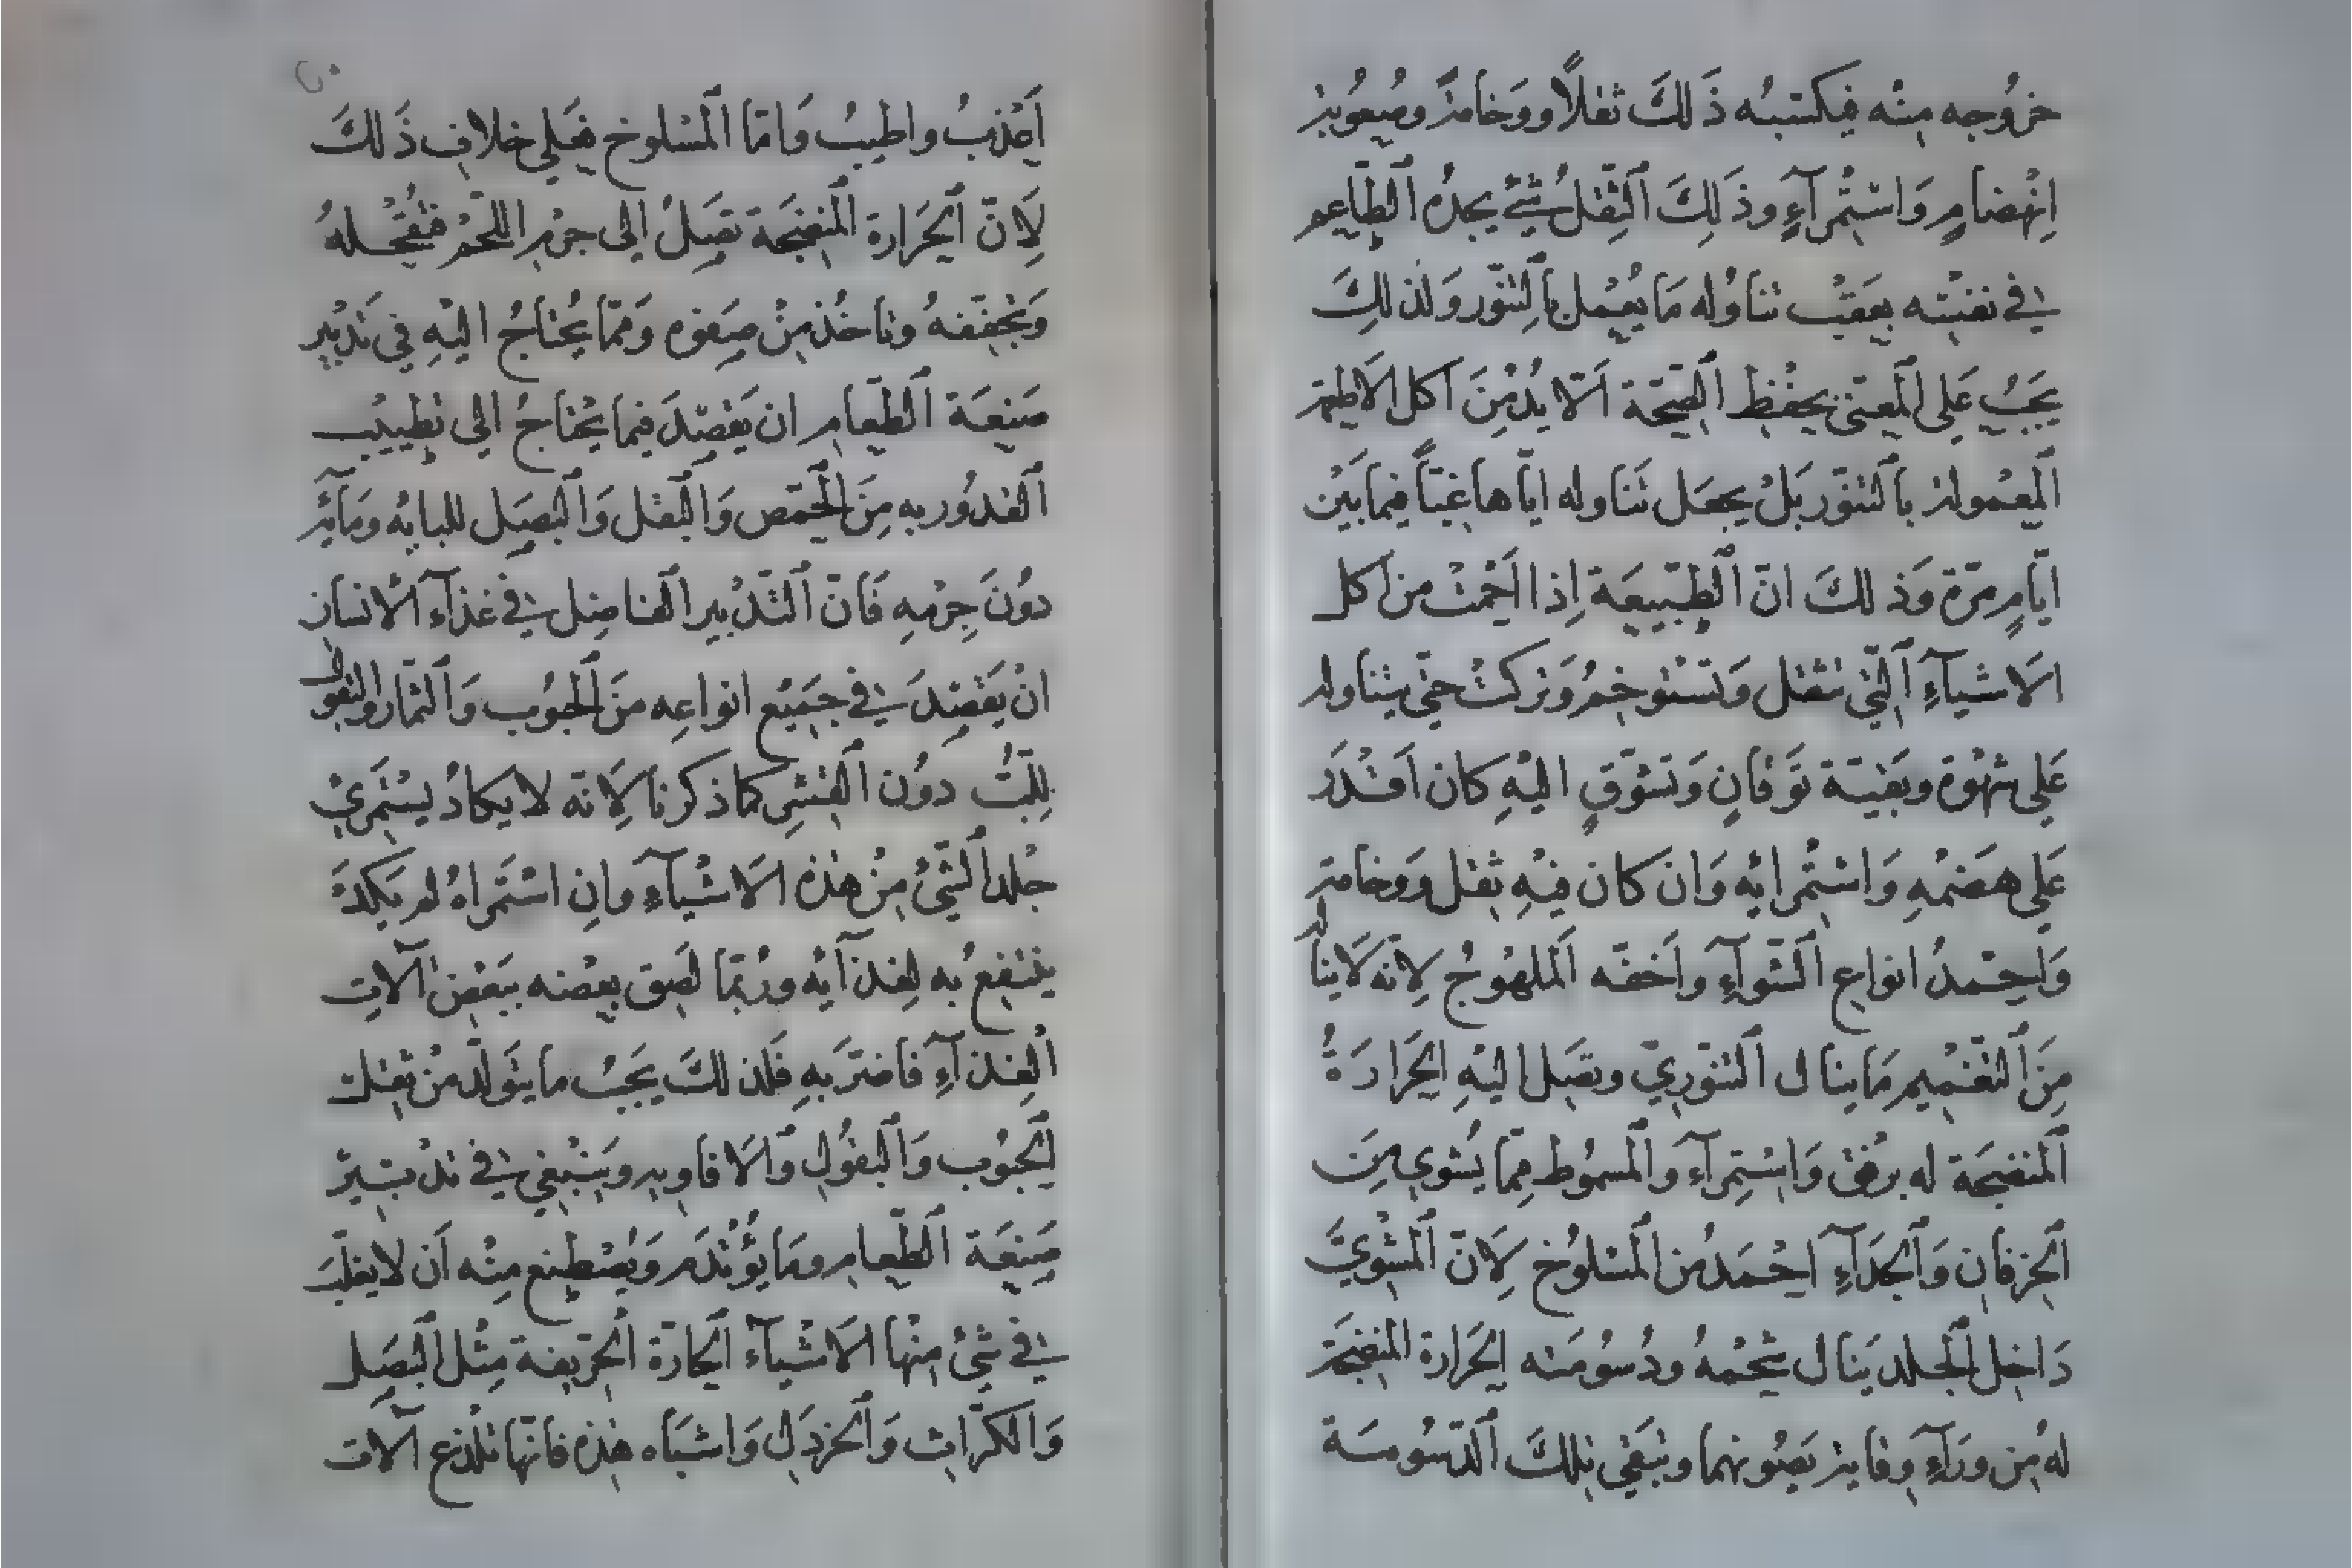 خرُوجه مِنْه فيكسبُه ذَلكَ ثقلًا ووَخامةً وصُعُوبة
اِنْهضامٍ وَاسْتِمْرآءٍ وذَلِكَ الثِّقلُ شيْئٌ يجدُه الطّاعم
في نفسْه بِعَقبْ تناوُله مَا يُعْمل بالتّنّور وَلذلكَ
يَجبُ عَلى المعْتنى بحفْظِ الصّحّة اَلّا يُدْمِنَ اكل الاَطعمة
المعْمولة بالتنّور بَلْ يجعَل تَناوله ايّاها غِبًّا فيما بَيْن
ايّامٍ مرّة وَذلكَ انّ الطّبيعَة اِذا اُحْمتْ من اكل
الاَشيآءِ الّتي تثقل وَتسْتوخمُ وَتركتْ حتّى يتناولَه
عَلى شهْوة وبَقيّة تَوَقانٍ وَتشوّقٍ اليْهِ كان اَقْدَرَ
عَلى هضَمْهِ وَاسْتمْرائِه وَانْ كان فيْهِ ثقل ووَخامة
وَاحْمدُ انواع الشّوآءِ واَخفّه المَلهْوجُ لِانّه لَا يناله
مِنَ التّغْميم مَا ينال التّنّوريّ وتصَل اليْهِ الحَرارَةُ
المنضجَة له برفق وَاسْتِمرآء وَالمسمُوط مِمّا يُشوى مِنَ
الخرفان وَالجدَآءِ احْمَدُ من المسْلوُخ لِاَنّ المشْوِيَّ
دَاخل الجلد يَنال شحْمهُ ودُسُومَته الحَرارة المنضجَة
لهُ من ورَآءِ وقاية تصُونهما وتبْقَى تلكَ الدّسُومَة
اَعْذبُ واطيبُ وَامّا المسْلوخ فعَلى خلاف ذَلكَ
لِاَنّ الحَرَارة المنْضجَة تصِلُ الى جرْم اللّحْم فتُقْحلهُ
وَتجففهُ وتاخُذ مِنْ صَفوه وَممّا يُحتاجُ اليْهِ في تَدْبير
صَنعَة الطّعام ان يَقصِدَ فيما يحتاجُ الى تطييْب
القدُور به مِنَ الحمّص وَالبقل وَالبصَل للبابِه ومَائِه
دوُنَ جِرْمهِ فَانّ التّدْبير الفاضل في غذآءِ الاْنسان
انْ يَقصِدَ في جَميْع انواعِه منَ الحبُوب وَالثّمار والبقول
لِلّبِّ دوُن القشرِ كما ذكرنا لِاَنّه لا يكادُ يسْتَمرئُ
جلد الشّئ منْ هذه الاَشْيآءِ واِن اسْتَمراهُ لم يَكدْ
ينتفعُ به لِغذآئِه ورُبّما لصِق بعْضه ببَعْضِ آلات
الْغِذآءِ فاضرّ بهِ فلذلكَ يَجبُ ما يتَولّد منْ ثقل
الحُبوب وَالبقُول وَالاَفاويه ويَنْبغي في تدْبيْر
صَنعَة الطّعام وما يؤْتدَم وَيُصْطنع منْه اَن لا يغلّبَ
في شئ منْها الاَشْيآء الحارّة الحرّيفة مِثْل البَصَل
وَالكرّاث وَالخردَل وَاشبَاه هذه فانّها تلذع آلات